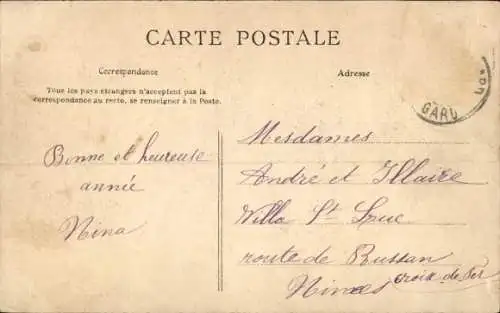 CARTE POSTALE
Correspondance
Tous les pays étrangers n'acceptent pas la
correspondance au recto, se renseigner à la Poste.
Bonne et heureuse
année
Nina
Adresse
GARD
Mesdames
André et Illaire
Villa St Luc
route de Russan
Nimes croix de fer